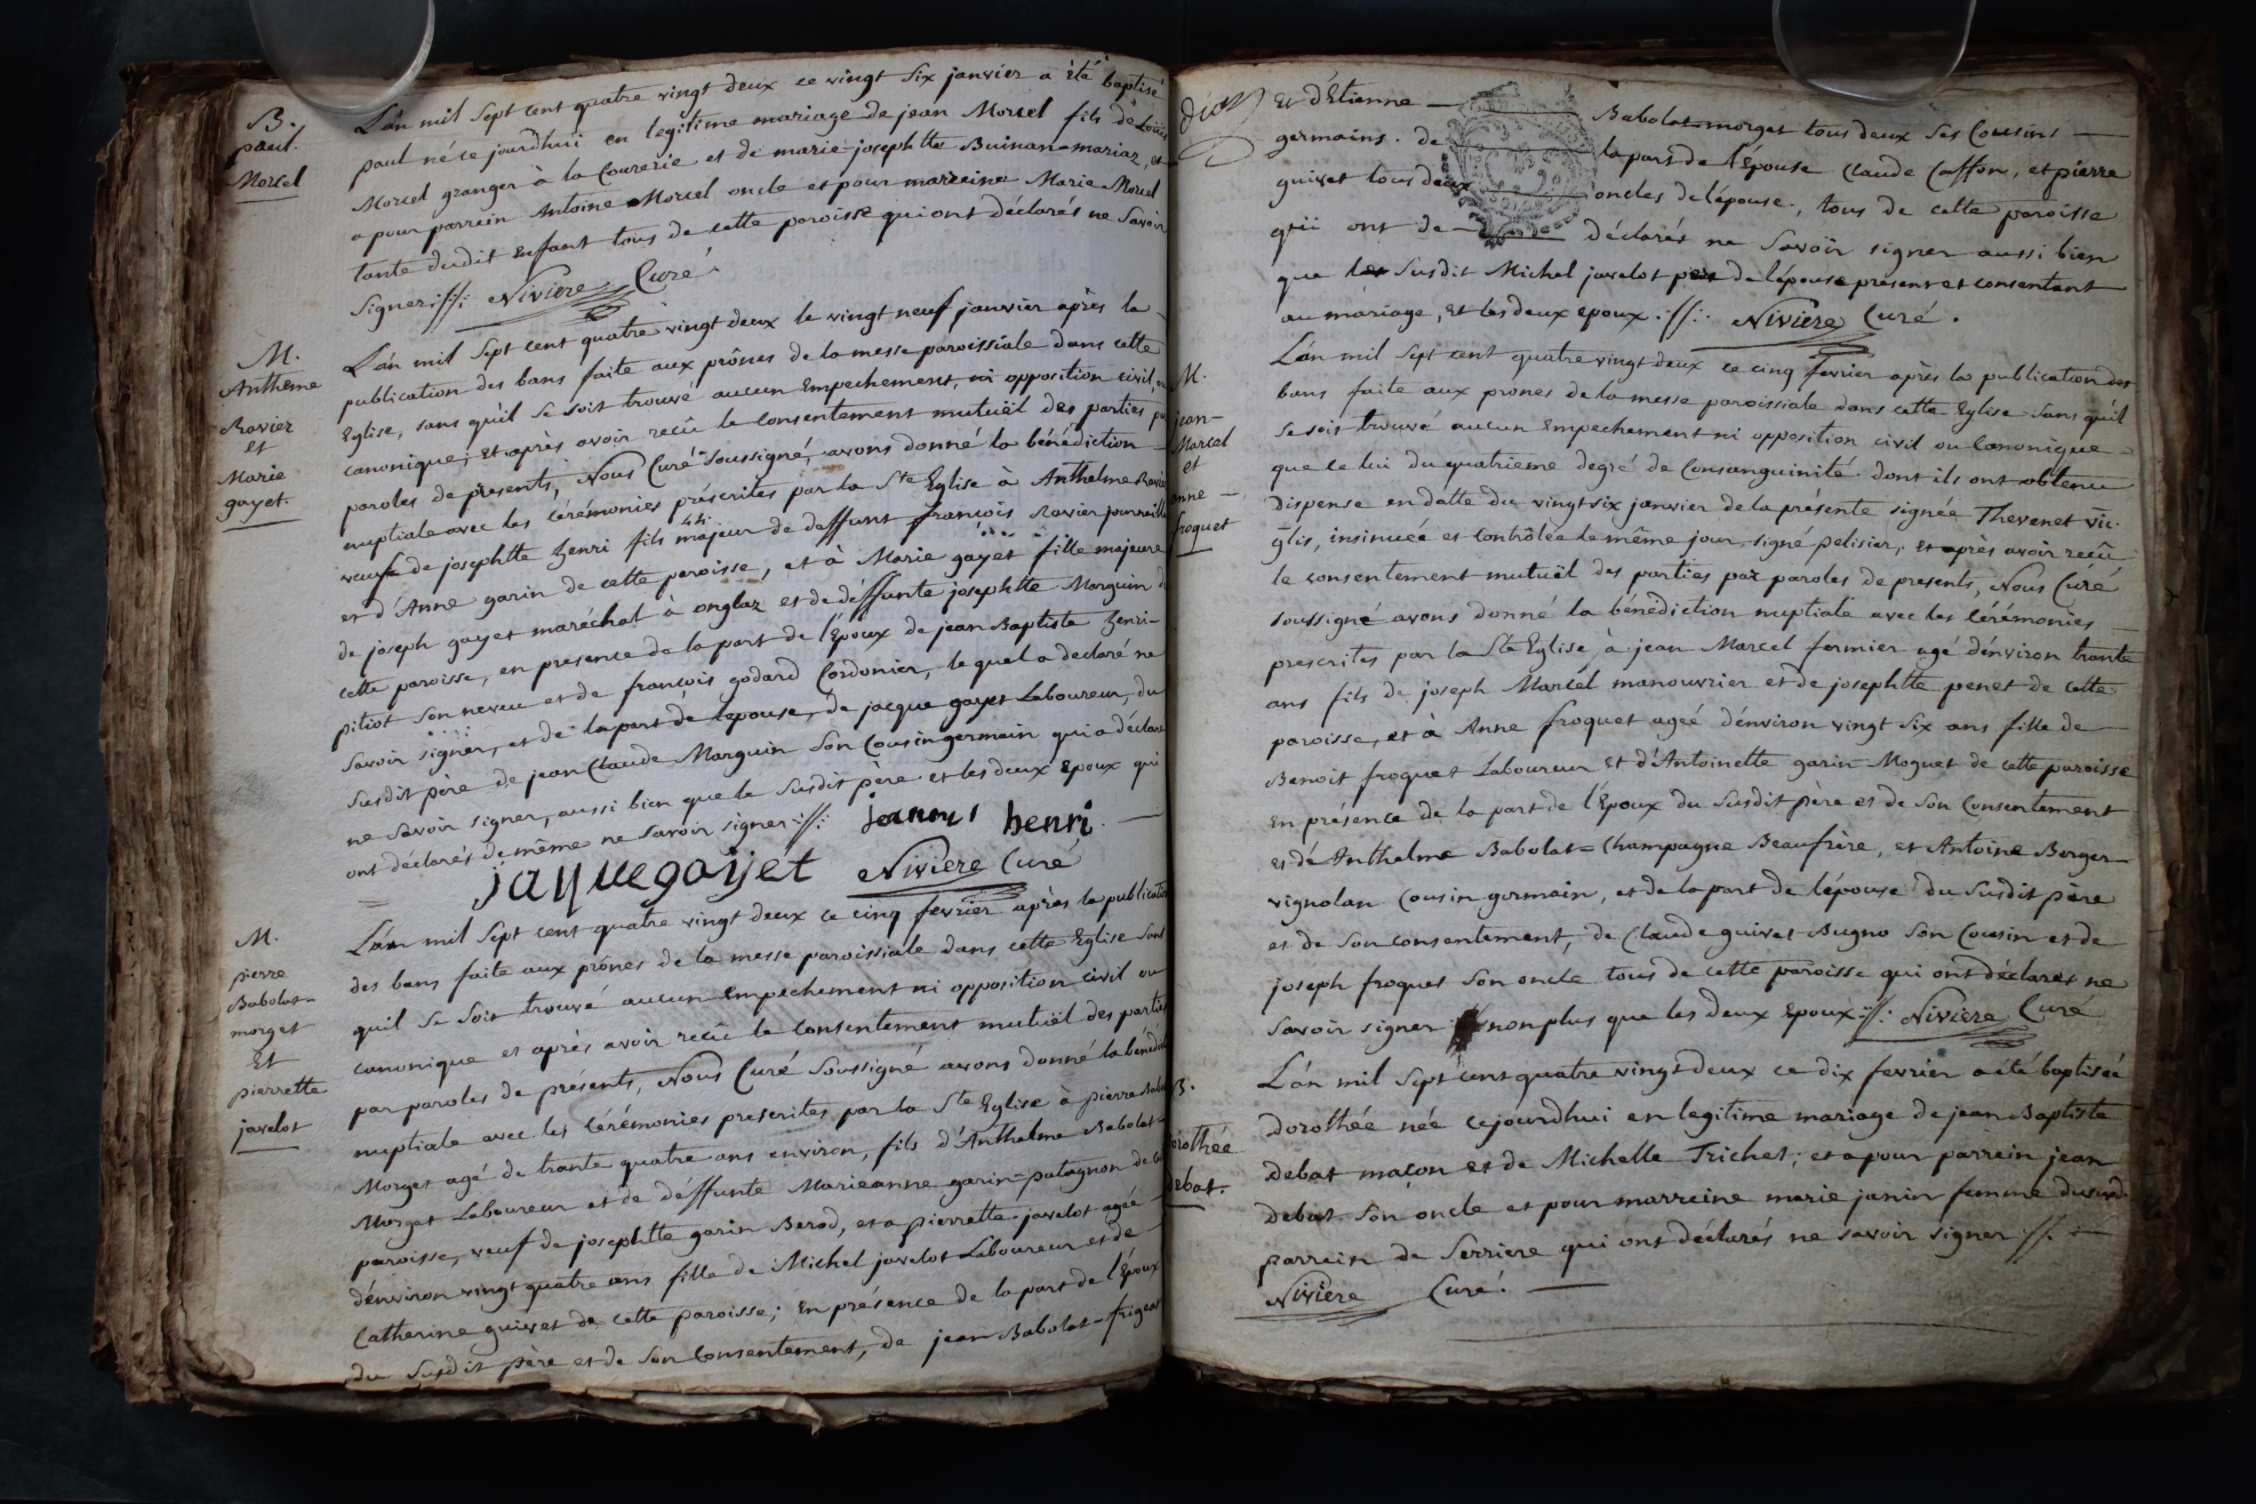 B.
paul.
Morcel
L'án mil Sept cent quatre vingt deux ce vingt Six janvier a été baptisé
paul né ce jourdhui en legitime mariage de jean Morcel fils de Loüis
Morcel granger à la Courerie et de marie josephtte Buinan=mariaz, et
a pour parrein Antoine Morcel oncle et pour marreine Marie Morcel
tante dudit Enfant tous de cette paroisse qui ont déclarés ne Savoir
Signer ://: Niviere Curé.
M.
Anthelme
Ravier
et
Marie
gayet.
L'án mil Sept cent quatre vingt deux le vingt neuf janvier après la
publication des bans faite aux prônes de la messe paroissiale dans cette
Eglise, sans qu'il se soit trouvé aucun Empechement, ni opposition civil, ou
canonique; Et après avoir reçû le Consentement mutuël des parties par
paroles de presents, Nous Curé Soussigné, avons donné la bénédiction
nuptiale avec les Cérémonies préscrites par la Ste Eglise à Anthelme Ravier
veuf de josephtte Henri fils majeur de deffunt françois Ravier journailler
et d'Anne garin de cette paroisse, et à Marie gayet fille majeure
de joseph gayet maréchal à onglaz et de déffunte josephtte Marguin de
cette paroisse, en presence de la part de l'Epoux de jean Baptiste henri-
pitiot Son neveu et de françois godard Cordonier, le quel a declaré ne
Savoir signer, et de la part de l'epouse, de jacque gayet Laboureur, du
Susdit père de jean Claude Marguin Son Cousin germain qui a déclaré
ne Savoir signer, aussi bien que le Susdit père et les deux Epoux qui
ont déclarés de même ne Savoir signer ://: henri
jaque gayet Niviere Curé
M.
pierre
Babolat=
morget
Et
pierrette
javelot
L'án mil Sept cent quatre vingt deux ce cinq fevrier après la publication
des bans faite aux prônes de la messe paroissiale dans cette Eglise Sans
qu'il Se Soit trouvé aucun Empechement ni opposition civil ou
canonique et après avoir reçû le Consentement mutuël des parties
par paroles de présents, Nous Curé Soussigné avons donné la bénédiction
nuptiale avec les Cérémonies prescrites par la Ste Eglise à pierre Babolat
Morget agé de trante quatre ans environ, fils d'Anthelme Babolat=
Morget Laboureur et de déffunte Marieanne garin=patagnon de cette
paroisse, veuf de josephtte garin Berod, et a pierrette javelot agée
d'environ vingt quatre ans fille de Michel javelot Laboureur et de
Catherine guivet de cette paroisse; En présence de la part de l'Epoux
du Susdit père et de Son Consentement, de jean Babolat=frigeat
Et d'Etienne Babolat=morget tous deux Ses Cousins
germains. de la part de l'Epouse Claude Caffon, et pierre
guivet tous deux oncles de l'épouse, tous de cette paroisse
qui ont de déclarés ne Savoir signer aussi bien
que le Susdit Michel javelot père de l'épouse présent et consentant
au mariage, Et les deux epoux ://: Niviere Curé.
M.
jean-
Marcel
et
anne -
froquet
L'án mil Sept cent quatre vingt deux ce cinq fevrier après la publication des
bans faite aux prones de la messe paroissiale dans cette Eglise Sans qu'il
Se soit trouvé aucun Empechement ni opposition civil ou Canonique
que ce lui du quatrieme degré de Consanguinité dont ils ont obtenu
Dispense en datte du vingt six janvier de la présente signée Thevenet vic.
glis, insinuée et contrôlée le même jour, signé pelisier; Et après avoir reçû
le consentement mutuël des parties par paroles de presents, Nous Curé
soussigné avons donné la bénédiction nuptiale avec les Cérémonies
prescrites par la Ste Eglise, à jean Marcel fermier agé d'énviron trante
ans fils de joseph Marcel manouvrier et de josephtte penet de cette
paroisse, et à Anne froquet ageé d'énviron vingt Six ans fille de
Benoit froquet Laboureur Et d'Antoinette garin=Moguet de cette paroisse
En présence de la part de l'Epoux du Susdit père et de Son Consentement
et de Anthelme Babolat=Champagne Beaufrère, et Antoine Berger=
vignolan Cousin germain, et de la part de l'épouse du Susdit père
et de Son consentement, de Claude guivet Bugno Son Cousin et de
joseph froquet Son oncle tous de cette paroisse qui ont déclarés ne
Savoir signer non plus que les deux Epoux ://: Niviere Curé
B.
Dorothée
Debat.
L'án mil Sept cent quatre vingt deux ce dix fevrier a été baptiseé
Dorothée née cejourdhui en legitime mariage de jean Baptiste
Debat maçon et de Michelle Trichet; et a pour parrein jean
Debat Son oncle et pour marreine marie janin femme dususd.
parrein de Serriere qui ont déclarés ne savoir signer ://:
Niviere Curé.